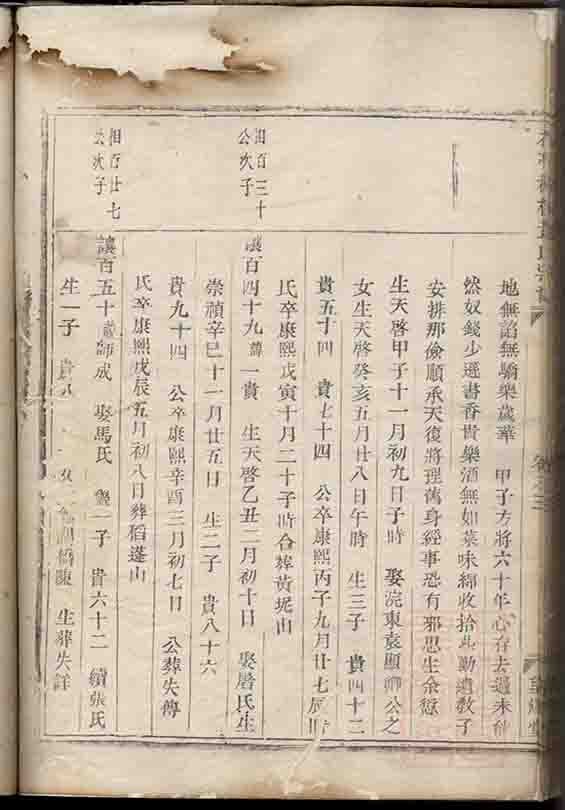 地無諂無驕樂歲華 甲子方將六十年心存去過未
然奴錢少遲書香貴樂酒無如菜味綿收拾此勤遺教子
安排那儉順承天復將理萬身經事恐有邪思生余愆
生天啓甲子十一月初九日子時 娶浣東袁顯卿公之
女生天啓癸亥五月廿八日午時 生三子 貴四十二
貴五十四 貴七十四 公卒康熙丙子九月廿七辰時
氏卒康熙戊寅十月二十子時合葬黃坭山
相百三十
公次子
讓百四十九 諱一貴 生天啓乙丑二月初十日 娶屠氏生
崇禎辛巳十一月廿五日 生二子 貴八十六
貴九十四 公卒康熙辛酉三月初七日 公葬失傳
氏卒康熙戊辰五月初八日葬稻蓬山
相百廿七
公次子
讓百五十 諱師成 娶馬氏 一子 貴六十二 續張氏
生一子 貴八 橋陳 生葬失詳